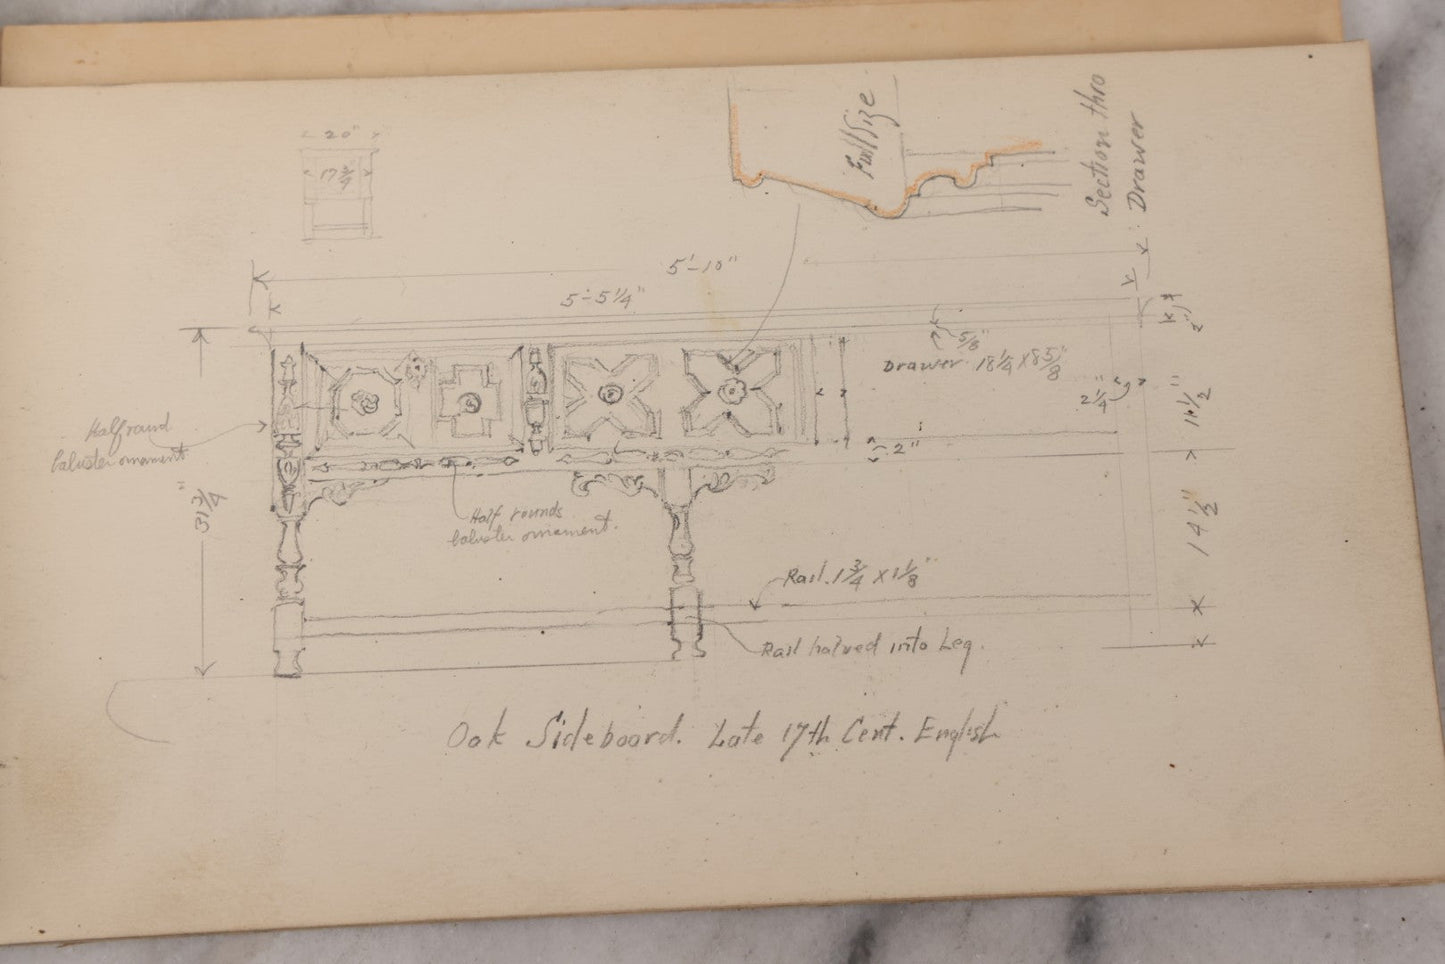 20"
17 3/4
Full Size
Section thro
Drawer
5'-10"
5-5 1/4"
5/8"
Drawer 18 1/4 x 8 5/8"
2 1/4"
2"
Half round
baluster ornament
31 3/4"
Half rounds
baluster ornament.
14 1/2"
Rail 1 3/4 x 1 1/8"
Rail halved into Leg.
Oak Sideboard. Late 17th Cent. English